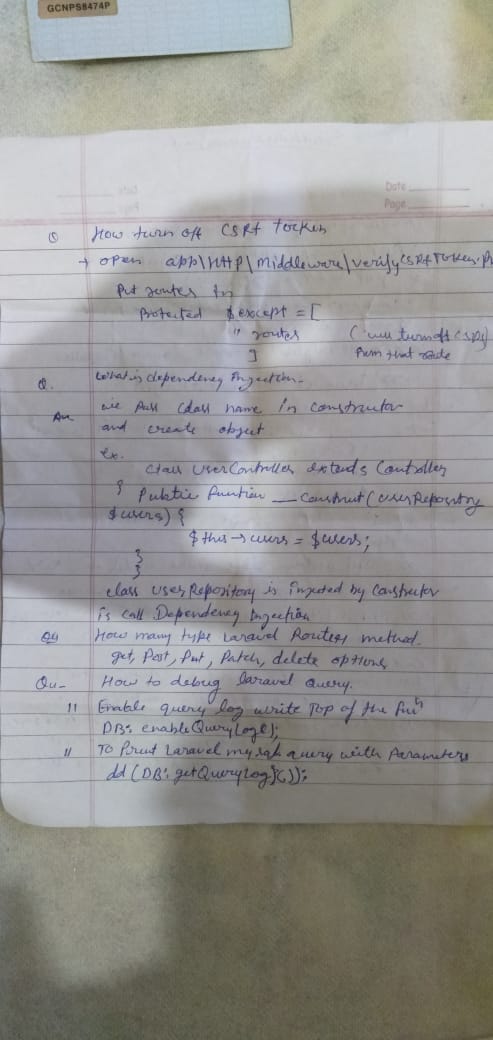 GCNPS8474P
Date
Page
Q How turn off CSRF Tocken
→ open app\HttP\Middleware\verifyCSRFToken.P
Put routes in
Protected $except = [
" routes (
] from that route
Q. What is dependency Injection.
An we Pass class name in constructor
and create object
ex.
class UserController extends Controller
{ Public function __construct (UserRepository
$users) {
$this → users = $users;
}
}
class UserRepository is injected by constructor
is call Dependency Injection
Qu How many type Laravel Routes method.
get, Post, Put, Patch, delete options
Qu- How to debug laravel query.
11 Enable query log write Top of the
DB:: enableQueryLog();
11 To Print Laravel mysql query with Parameters
dd (DB:: getQueryLog());